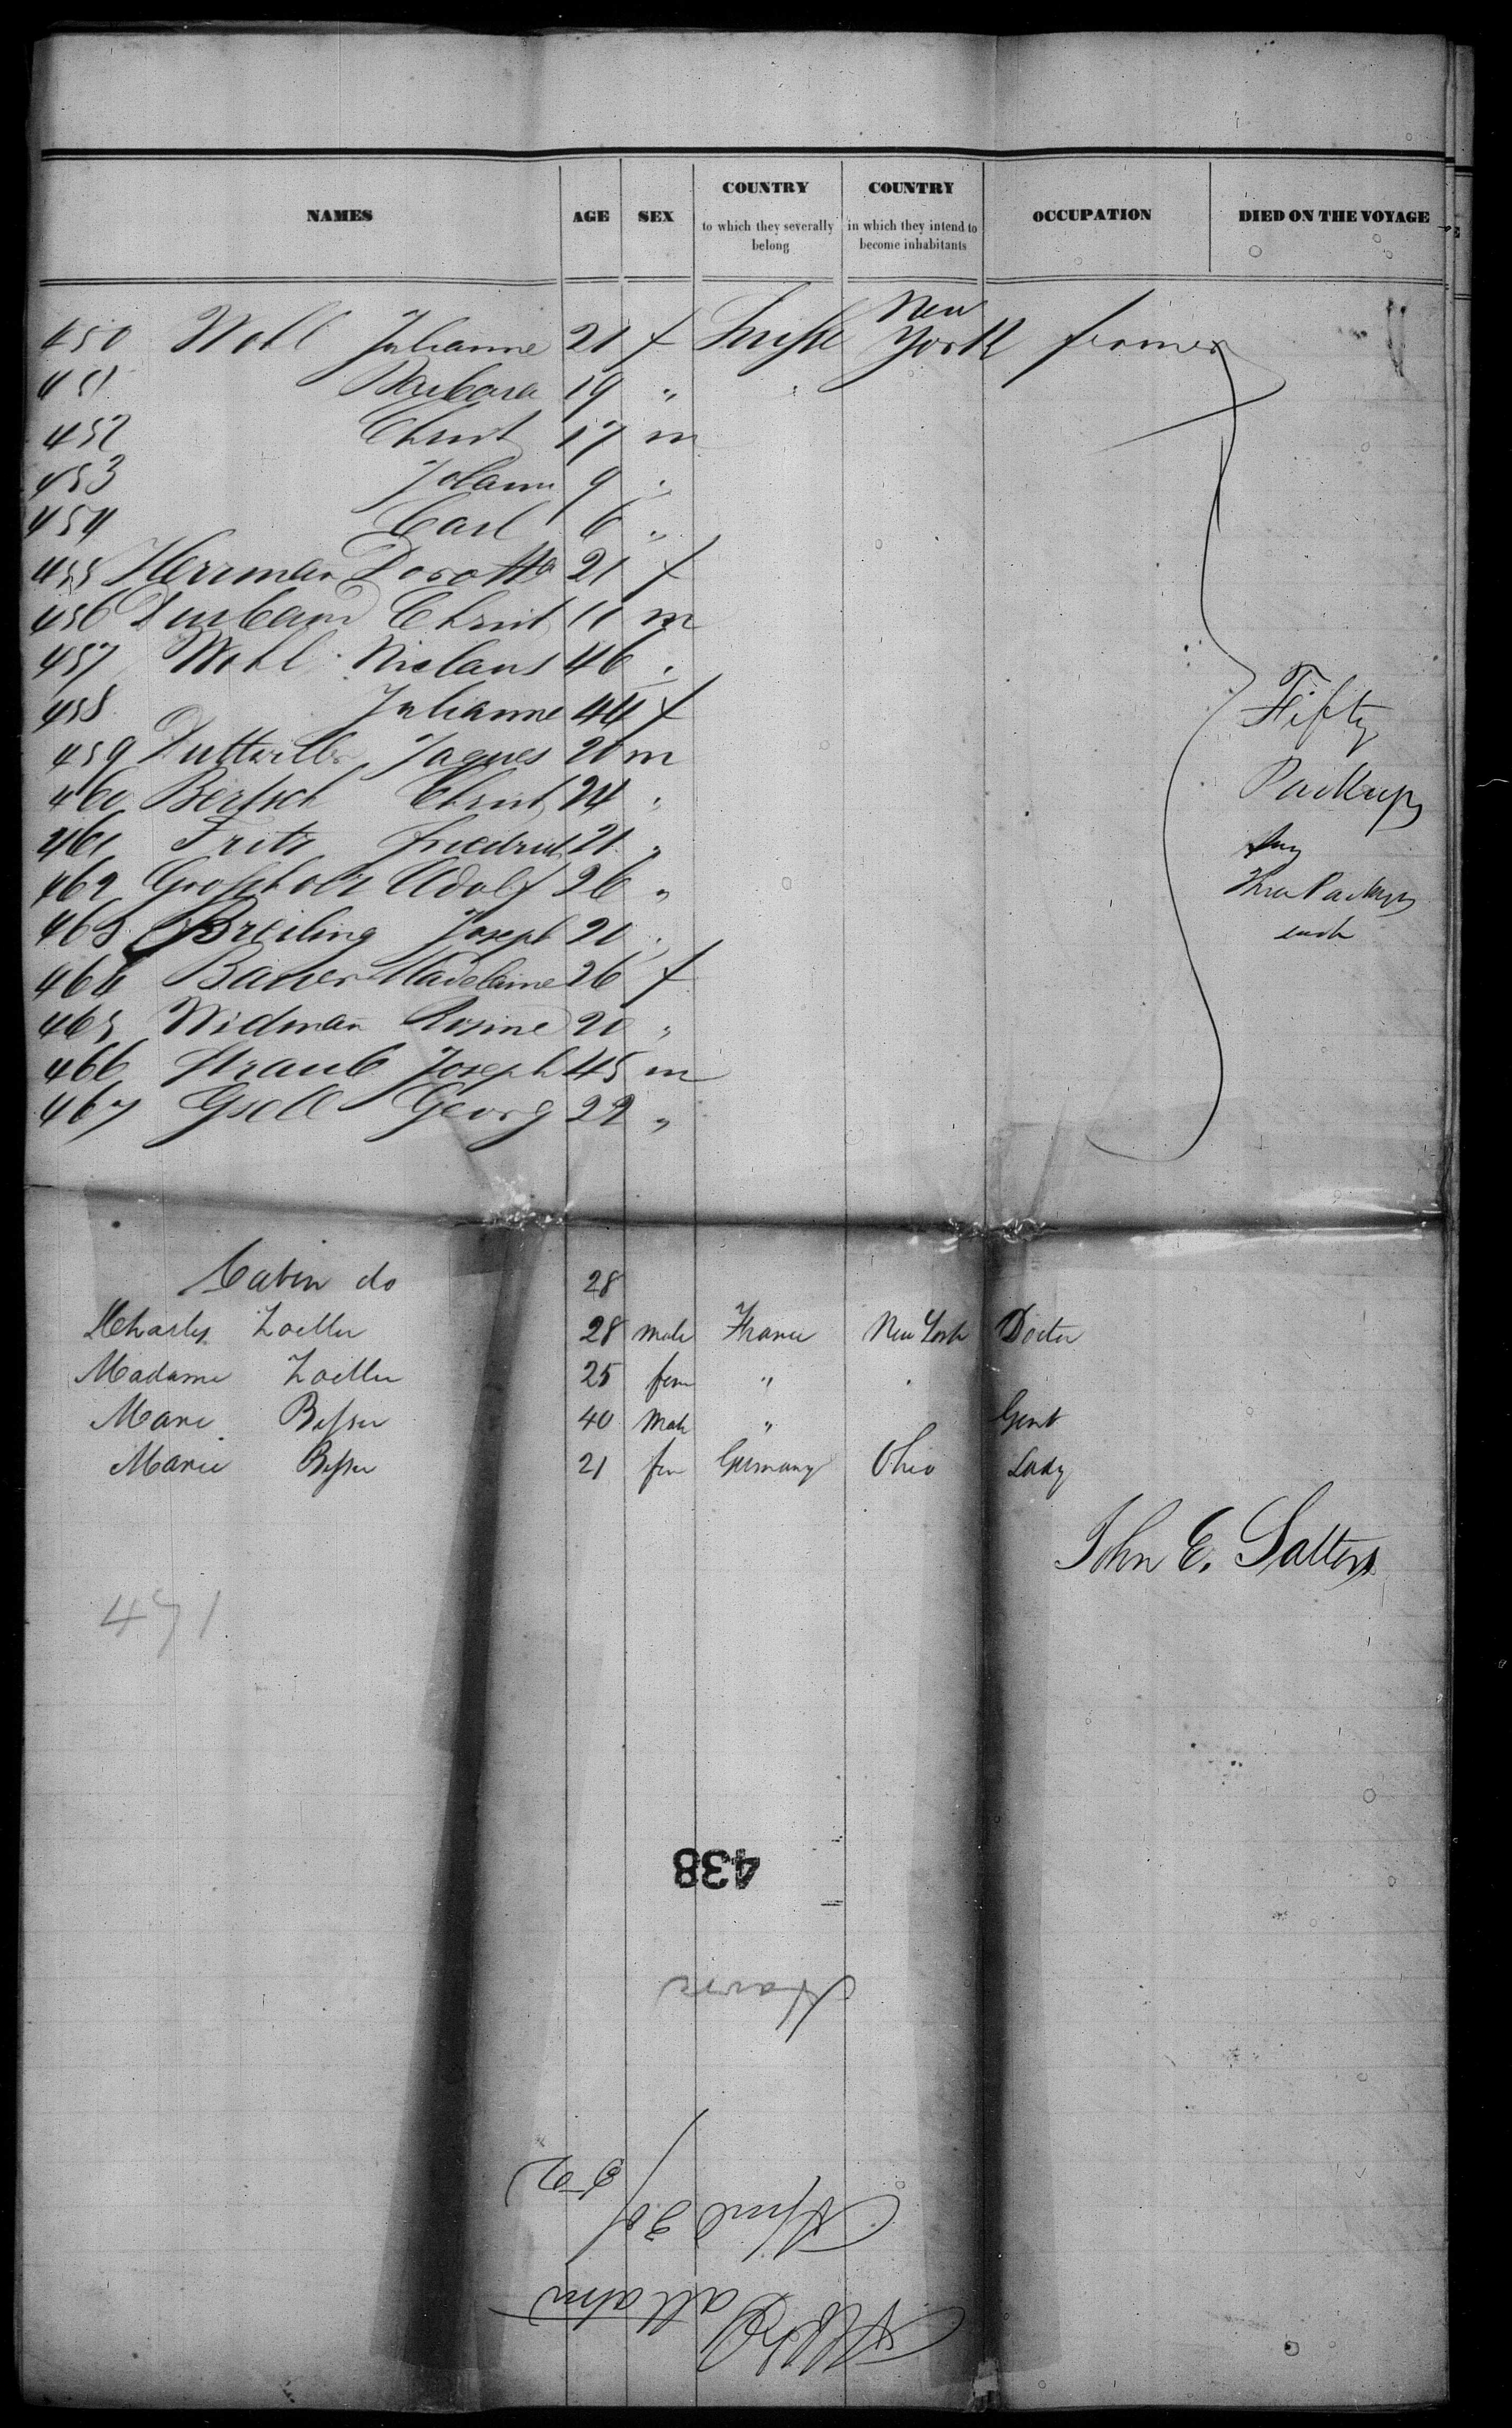 NAMES AGE SEX COUNTRY to which they severally belong COUNTRY in which they intend to become inhabitants OCCUPATION DIED ON THE VOYAGE
450 Wohl Julianne 21 f Suisse New York farmer
451 Barbara 19 "
452 Christ 17 m
453 Johann 9 "
454 Carl 6 "
455 Herrman Dorotha 21 f
456 Christ 11 m
457 Wohl Niclaus 46 "
458 Julianne 44 f
459 Duttwiller Jaques 20 m
460 Bertsch Christ 24 "
461 Fritz Friedrich 21 "
462 Grossholz Adolf 26 "
463 Breiling Joseph 20 "
464 Bauer Madelaine 26 f
465 Widman Rosine 20 "
466 Straub Joseph 45 m
467 Gsell Georg 22 "
Fifty
Packages
Three Packages
each
Cabin do 28
Charles Zoeller 28 male France New York Doctor
Madame Zoeller 25 fem "
Besser 40 Male " Gent
Marie Besser 21 fem Germany Ohio Lady
John E. Salters
471
438
Havre
April 30/
52